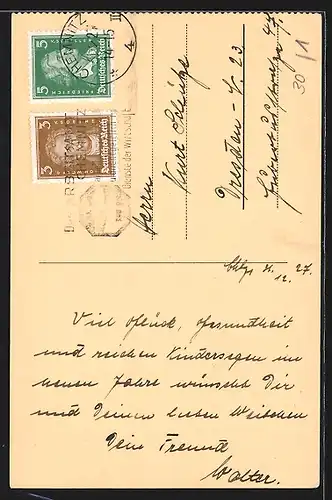 5 5
Deutsches Reich
FRIEDRICH
CHEMNITZ
3 3
Deutsches Reich
GOETHE
Dienste der Wirtschaft
30/1
Herrn
Kurt
Dresden - N. 23
27.
12.
Viel Glück, Gesundheit
und reichen Kindersegen im
neuen Jahre wünscht Dir
und Deinen lieben Weibchen
Dein Freund
Walter.